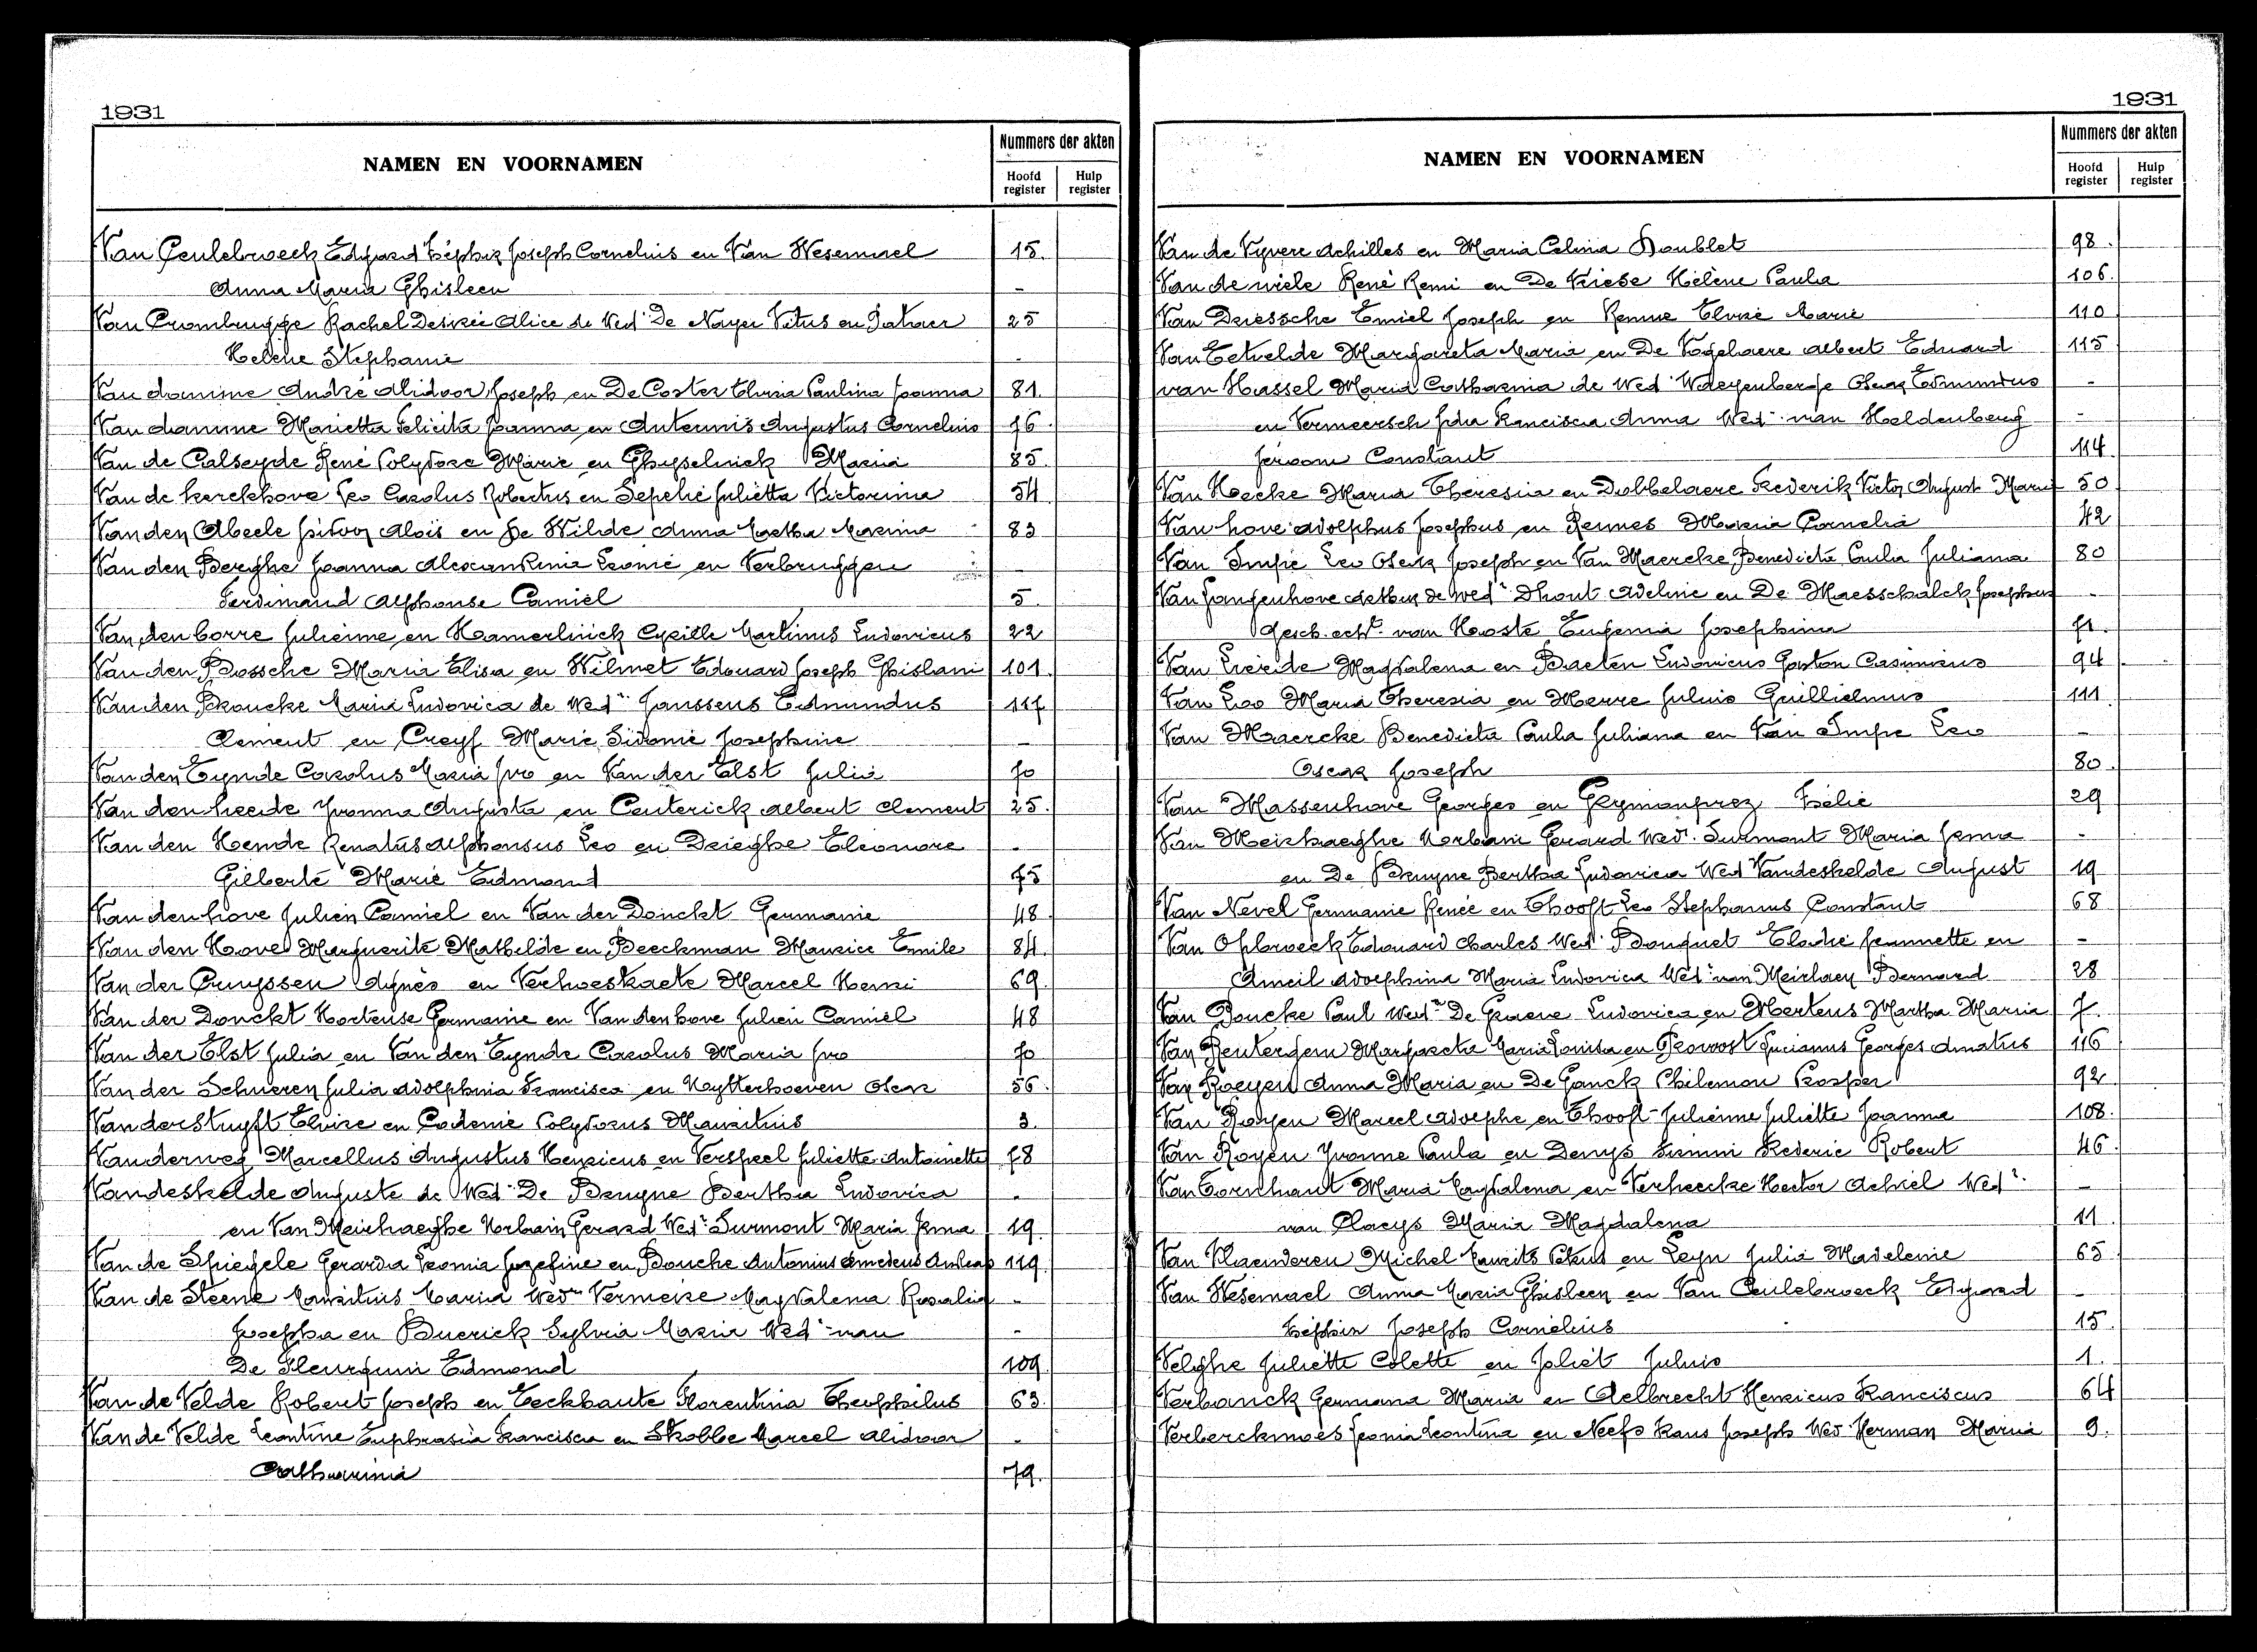 1931
NAMEN EN VOORNAMEN
Nummers der akten
Hoofd register
Hulp register
Van Ceulebroeck Edgard Zéphir Joseph Cornelius en Van Wesemael 15.
Anna Maria Ghisleen -
Van Crombrugge Rachel Desirée Alice de Wed. De Nayer Vitus en
Helène Stephanie -
Van damme André Alidoor Joseph en De Coster Elvria Paulina Joanna 81.
Van damme Marietta Felicita Joanna en Anteunis Augustus Cornelius 76.
Van de Calseyde René Polydore Marie en Ghyselinck Maria 85.
Van de kerckhove Leo Carolus Robertus en Sepelie Julietta Victorina 54
Van den Abeele Alois en De Wilde Anna Martha Maxima 83
Van den Berghe Joanna Alexandrina Leonie en Verbruggen -
Ferdinand Alphonse Camiel 5.
Van den borre Julienne en Kamerlinck Cyrille Martinus Ludovicus 22
Van den Bossche Maria Elisa en Wilmet Edouard Joseph Ghislani 101.
Van den Broucke Maria Ludovica de Wed. Janssens Edmundus 117
Clement en Creyf Marie Sidonie Josephine -
Van den Eynde Carolus Maria Ivo en Van der Elst Julia 70
Van den heede Yvonna Augusta en Centerick Albert Clement 25.
Van den Hende Renatus Alphonsus Leo en Drieghe Eléonore -
Gilberte Marie Edmond 75
Van den hove Julien Camiel en Van der Donckt Germanie 48
Van den Hove Marguerite Mathilde en Beeckman Maurice Emile 84.
Van der Cruyssen Agnès en Verhoestraete Marcel Henri 69.
Van der Donckt Hortense Germaine en Van den hove Julien Camiel 48
Van der Elst Julia en Van den Eynde Carolus Maria Ivo 70
Van der Schueren Julia Adolphina Francisca en Uytterhoeven Oscar 56.
Vanderstuyft Elvire en Codenie Polydorus Mauritius 3.
Vanderweg Marcellus Augustus Henricus en Verspeel Juliette Antoinette 78
Vandeskelde Auguste de Wed. De Bruyne Bertha Ludovica -
en Van Meirhaeghe Norbain Gerard Wed. Surmont Maria Irma 19.
Van de Spiegele Gerarda Leonia Jozefine en Bouche Antonius Amedeus Andreas 119
Van de Steene Mauritius Maria Wed. Vermeire Magdalena Rosalia -
Josepha en Buerick Sylvia Maria Wed. van -
De Fleurquin Edmond 109
Van de Velde Robert Joseph en Eeckhaute Florentina Theophilus 63.
Van de Velde Leontine Euphrasia Francisca en Strobbe Marcel Alidoor -
Catharina 79.
1931
NAMEN EN VOORNAMEN
Nummers der akten
Hoofd register
Hulp register
Van de Vyvere Achilles en Maria Celina Doublet 98.
Van de wiele René Remi en De Vriese Hélène Paula 106.
Van Driessche Emiel Joseph en Remue Elvire Marie 110
Van Eetvelde Margareta Maria en De Vogelaere Albert Eduard 115
van Hassel Maria Catharina de Wed. Waeyenberge Oscar Edmundus -
en Vermeersch Ida Francisca Anna Wed. van Holdenberg -
Jeroom Constant 114
Van Hecke Maria Theresia en Dobbelaere Frederik Victor August Marie 50
Van hove Adolphus Josephus en Rennes Maria Cornelia 42
Van Impe Leo Oscar Joseph en Van Maercke Benedicta Paula Juliana 80
Van Langenhove Arthur de wed. Dhont Adeline en De Maesschalck Josephus -
Gesch. echt. van Hooste Eugenia Josephina 71.
Van Lierde Magdalena en Baeten Ludovicus Gaston Casimirus 94
Van Loo Maria Theresia en Merre Julius Guillielmus 111
Van Maercke Benedicta Paula Juliana en Van Impe Leo -
Oscar Joseph 80.
Van Massenhove Georges en Geymonprez Zélie 29
Van Meirhaeghe Norbain Gerard Wed. Surmont Maria Irma -
en De Bruyne Bertha Ludovica Wed. Vandeskelde August 19
Van Nevel Germanie Renée en Thooft Leo Stephanus Constant 68
Van Opbroeck Edouard Charles Wed. Bouquet Elodie Jeannette en -
Ameil Adolphina Maria Ludovica Wed. van Meirlaen Bernard 28
Van Poucke Paul Wed. De Graeve Ludovica en Mertens Martha Maria 7.
Van Reutergem Margareta Maria Louisa en Provost Lucianus Georges Amatus 116
Van Roeyen Anna Maria en De Ganck Philemon Prosper 92
Van Royen Marcel Adolphe en Thooft Julienne Juliette Joanna 108.
Van Royen Yvonne Paula en Denys Firmin Frederic Robert 46.
Van Tornhaut Maria Magdalena en Verheecke Hector Achiel Wed. -
van Claeys Maria Magdalena 11
Van Vlaenderen Michel Maurits Petrus en Leyn Julia Madeleine 65
Van Wesemael Anna Maria Ghisleen en Van Ceulebroeck Edgard -
Zéphir Joseph Cornelius 15
Velghe Juliette Colette en Joliet Julius 1.
Verbanck Germana Maria en Aelbrecht Henricus Franciscus 64
Verberckmoes Leonia Leontina en Neefs Frans Joseph Wed. Herman Maria 9.